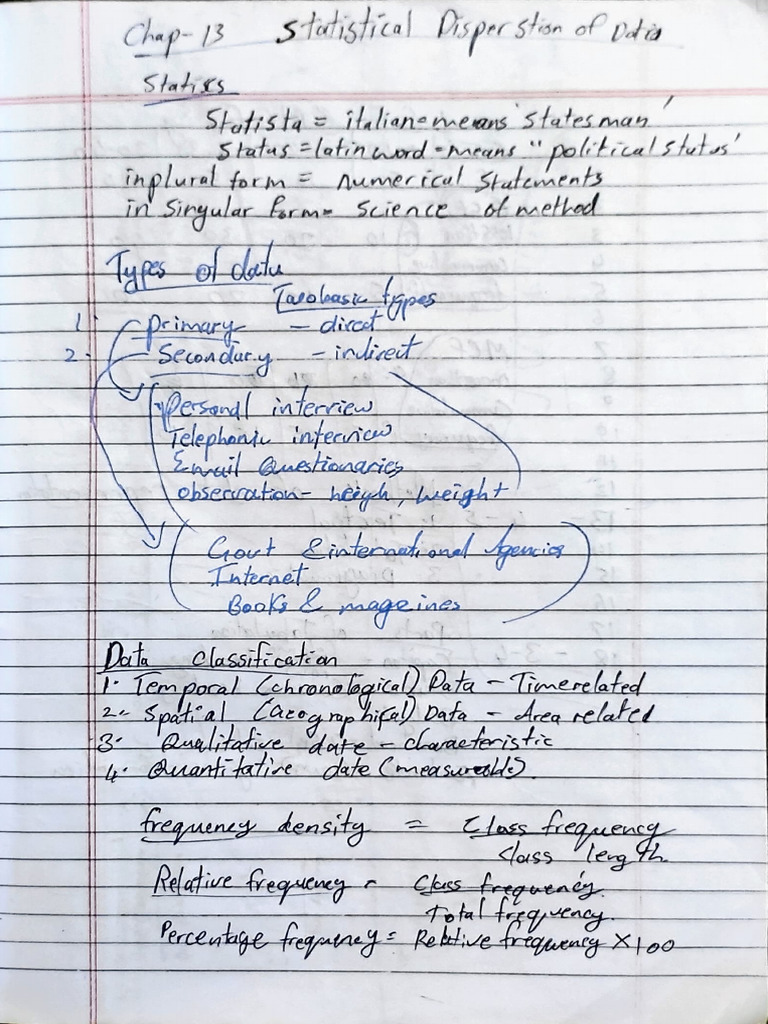 Chap-13 Statistical Disperstion of Data
Statiscs
Statista = italian = means 'statesman'
Status = latin word - means "political status'
in plural form = numerical statements
in Singular form = Science of method
Types of data
Two basic types
1. primary - direct
2. Secondary - indirect
Personal interview
Telephonic interview
Email Questionaries
observation - heigh, weight
Govt & international Agencies
Internet
Books & magazines
Data classification
1. Temporal (chronological) Data - Time related
2. Spatial (Geographical) Data - Area related
3. Qualitative date - characteristic
4. Quantitative date (measurable).
frequency density = Class frequency
class length
Relative frequency = Class frequency
Total frequency.
Percentage frequency = Relative frequency X 100